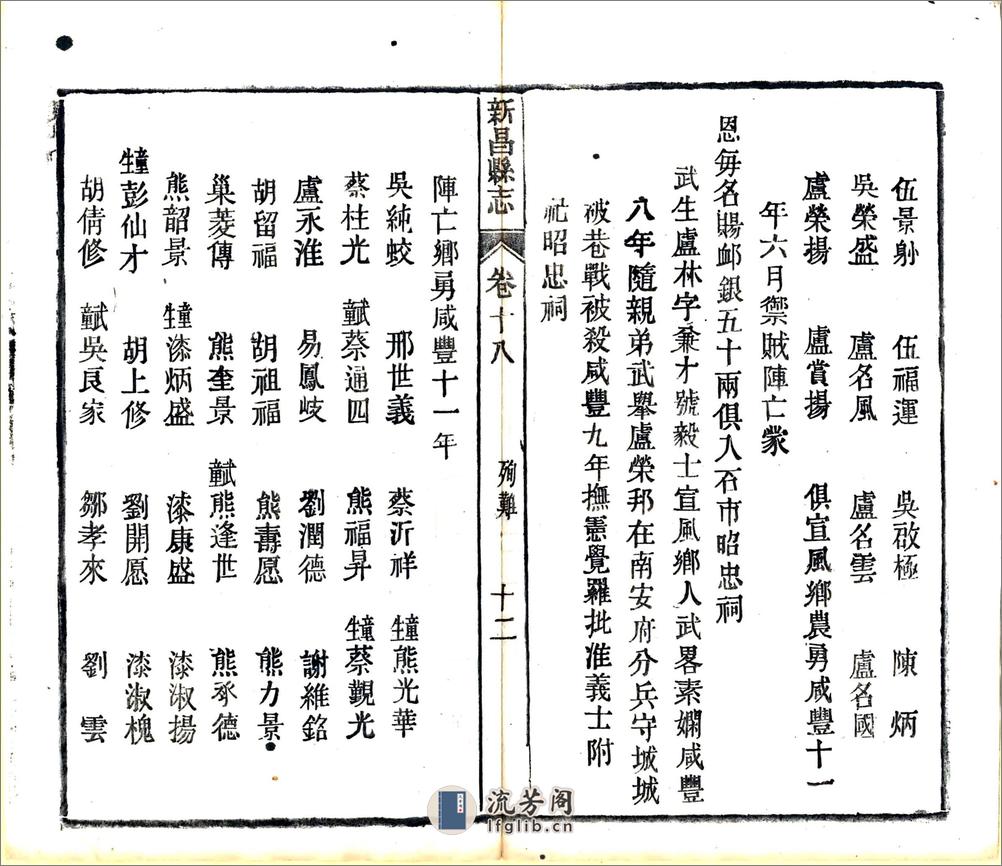 伍景射 伍福運 吳啟極 陳炳
吳榮盛 盧名風 盧名雲 盧名國
盧榮揚 盧賞揚 俱宣風鄉農勇咸豐十一
年六月禦賊陣亡蒙
恩每名賜䘏銀五十兩俱入石市昭忠祠
武生盧林字兼才號毅士宣風鄉人武畧素嫻咸豐
八年隨親弟武舉盧榮邦在南安府分兵守城城
被巷戰被殺咸豐九年撫憲覺羅批准義士附
祀昭忠祠
新昌縣志 卷十八 殉難 十二
陣亡鄉勇咸豐十一年
吳純蛟 邢世義 蔡沂祥 童生熊光華
蔡柱光 武童蔡通四 熊福昇 童生蔡觀光
盧永淮 易鳳岐 劉潤德 謝維銘
胡留福 胡祖福 熊壽愿 熊力景
巢菱傳 熊奎景 武童熊逢世 熊承德
熊韶景 童生漆炳盛 漆康盛 漆淑揚
童生彭仙才 胡上修 劉開愿 漆淑槐
胡倩修 武童吳良家 鄒孝來 劉雲
流芳阁
lfglib.cn